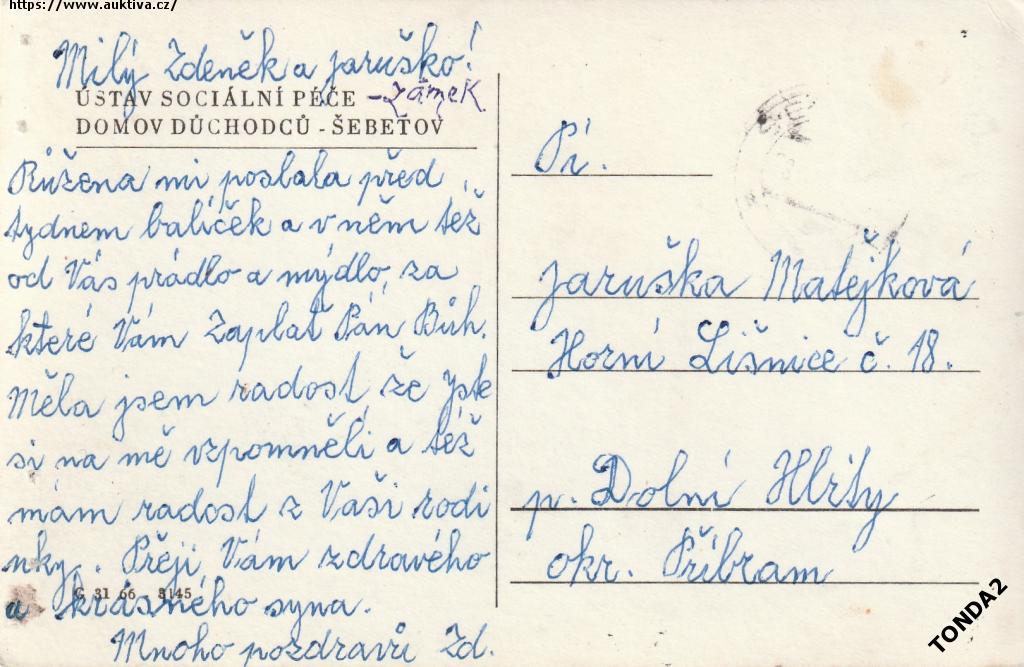 https://www.auktiva.cz/
Milý Zdeněk a Jaruško!
ÚSTAV SOCIÁLNÍ PÉČE - Zámek
DOMOV DŮCHODCŮ - ŠEBETOV
Růžena mi poslala před
tydnem balíček a v něm též
od Vás prádlo a mýdlo, za
které Vám Zaplať Pán Bůh.
Měla jsem radost že jste
si na mě vzpomněli a též
mám radost z Vaši rodi
nky. Přeji Vám zdravého
a krásného syna.
G 31 66 - 3145
Mnoho pozdravů Zd.
Pí.
Jaruška Matějková
Horní Líšnice č. 18.
p. Dolní Hbity
okr. Příbram
TONDA2